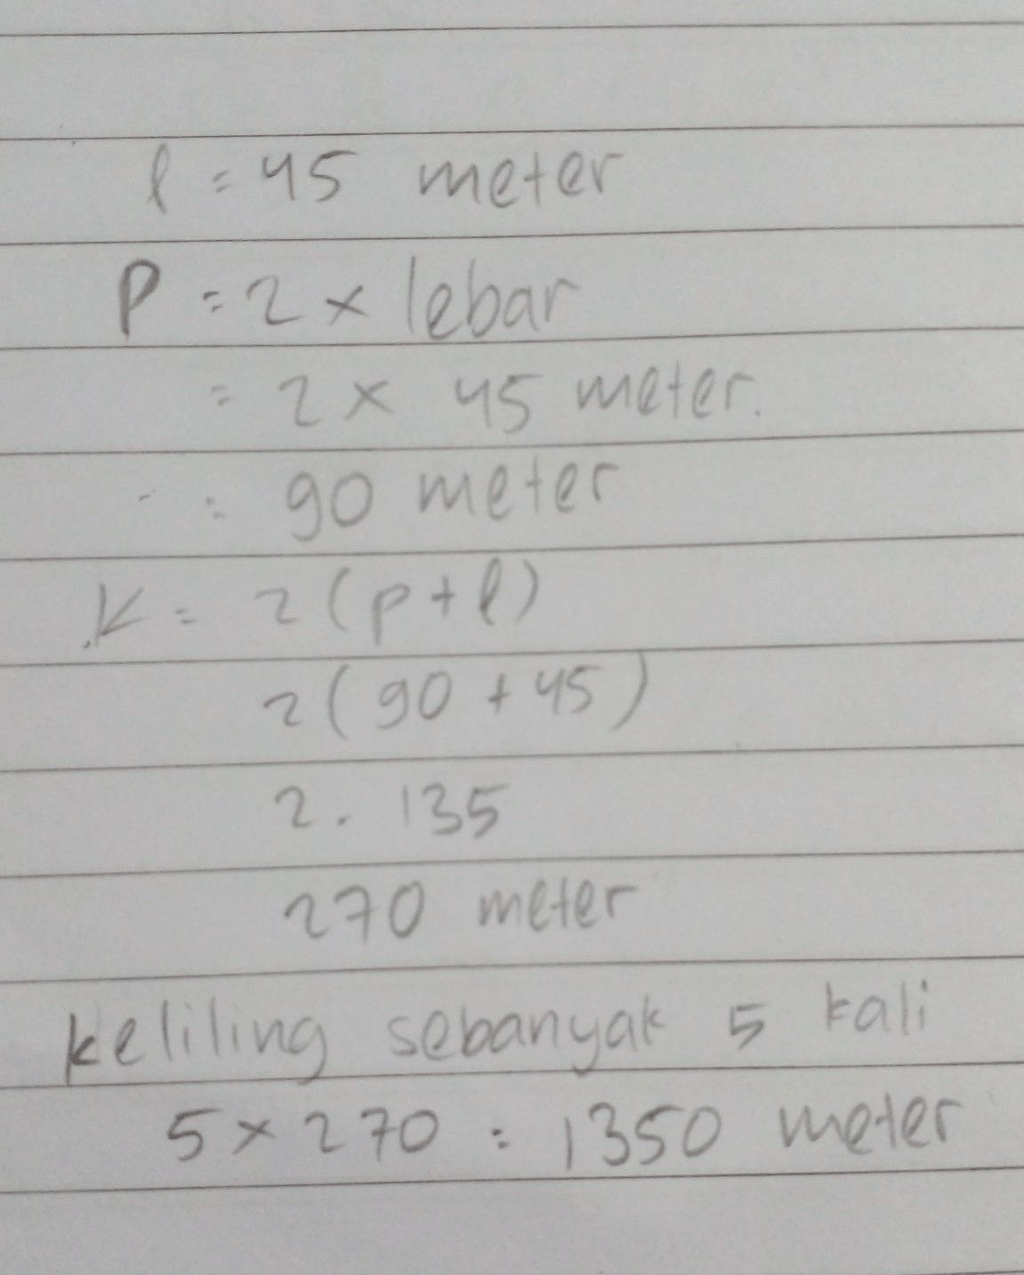 l = 45 meter
P = 2 x lebar
= 2 x 45 meter.
= 90 meter
K = 2 (p+l)
2 (90 + 45)
2 . 135
270 meter
keliling sebanyak 5 kali
5 x 270 = 1350 meter